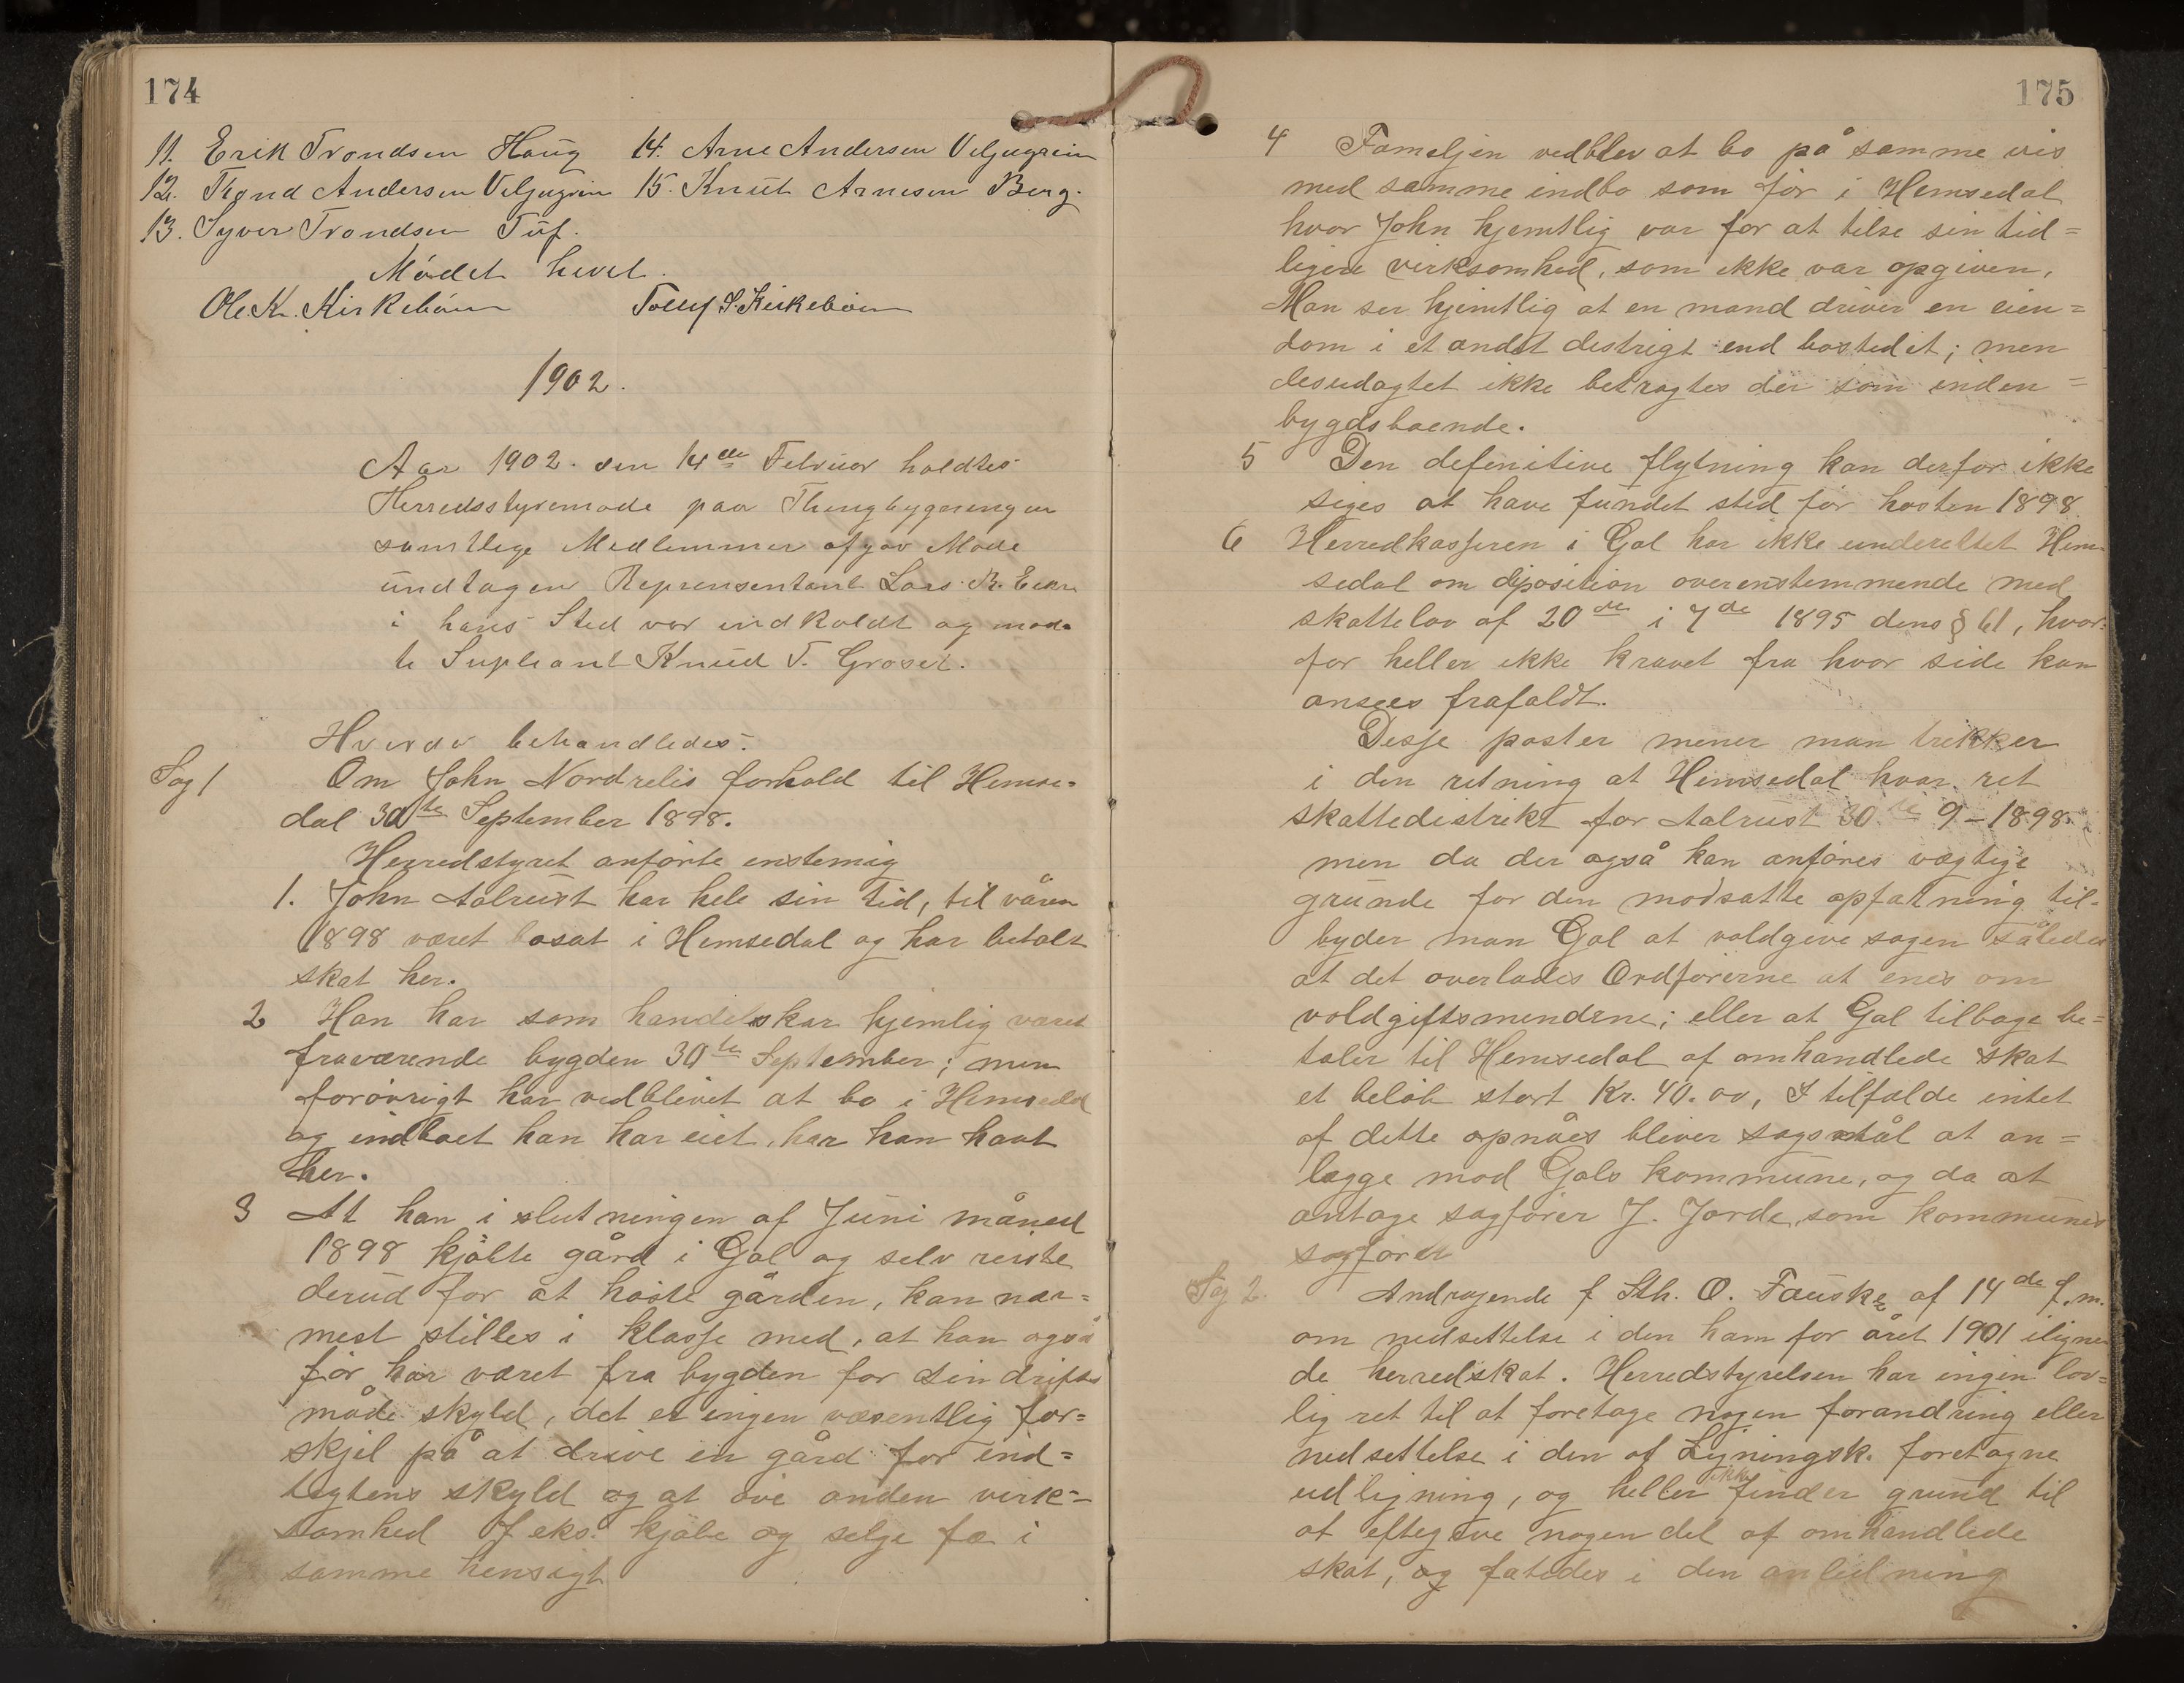 174
11. Erik Trondsen Haug 14. Arne Andersen Veljugrein
12. Trond Andersen Veljugrein 15. Knut Arnesen Berg.
13. Syver Trondsen Tuf.
Mödet hevet.
Ole K. Kirkeböen Tollef S. Kirkeböen
1902.
Aar 1902. den 14de Februar holdtes
Herredsstyremöde paa Thingbygningen
samtlige Medlemmer afgav Möde
undtagen Reprensentant Lars R.
i hans Sted var indkaldt og mød-
te Supleant Knud T. Gröset.
Hvorda behandledes:
Sag 1 Om John Nordrelis forhold til Hemse-
dal 30te September 1898.
Herredstyret anförte enstemig
1. John Aalrust har hele sin tid, til våren
1898 været bosat i Hemsedal og har betalt
skat her.
2 Han har som handelskar hjemlig været
fraværende bygden 30te September; men
forövrigt har vedblivet at bo i Hemsedal
og indboet han har eiet, har han havt
her.
3 At han i slutningen af Juni måned
1898 kjöbte gård i Gol og selv reiste
derud for at höste gården, kan nær=
mest stilles i klasse med, at han også
för har været fra bygden for sin drifts
måde skyld, det er ingen væsentlig for=
skjel på at drive en gård for ind=
tegtens skyld og at öve anden virk=
somhed f eks. kjöbe og selge fæ i
samme hensigt
175
4 Fameljen vedblev at bo på samme vis
med samme indbo som för i Hemsedal
hvor John hjemtlig var for at tilse sin tid=
ligere virksomhed, som ikke var opgiven,
Man ser hjemtlig at en mand driver en eien=
dom i et andet destrigt end bostedet; men
desudagtet ikke betragtes der som inden=
bygdsboende.
5 Den defenitive flytning kan derfor ikke
siges at have fundet sted för hösten 1898
6 Herredkasseren i Gol har ikke underettet Hem-
sedal om diposition overenstemmende med
skattelov af 20de i 7de 1895 dens § 61, hvor=
for heller ikke kravet fra hvor side kan
ansees frafaldt.
Desse poster mener man trekker
i den retning at Hemsedal hvar ret
skattedistrikt for Aalrust 30te 9-1898.
men da der også kan anföres vægtige
grunde for den modsatte opfatning til-
byder man Gol at voldgeve sagen således
at det overlades Ordförerne at enes om
voldgiftsmendene; eller at Gol tilbage be=
taler til Hemsedal af omhandlede skat
et belöb stort Kr. 40.00, I tilfælde intet
af dette opnåes bliver sagsmål at an=
lægge mod Gols kommune, og da at
antage sagförer J. Jorde, som kommunes
sagförer
Sag 2. Andragende f Sth. O. Fauske af 14de f. m.
om nedsettelse i den ham for året 1901 iligne
de herredskat. Herredstyrelsen har ingen lov=
lig ret til at foretage nogen forandring eller
nedsettelse i den af Ligningsk. foretagne
udligning, og heller ikke finder grund til
at eftegive nogen del af omhandlede
skat, og fatedes i den anledning